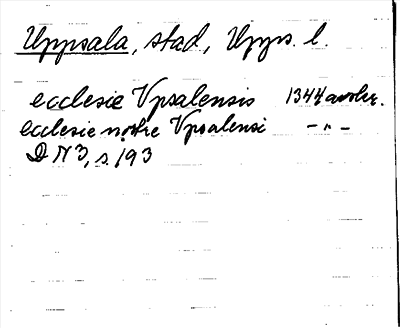 Uppsala, stad, Upps. l.
ecclesie Vpsalensis 1344 avskr.
ecclesie nostre Vpsalensi -"-
DN 3, s. 193